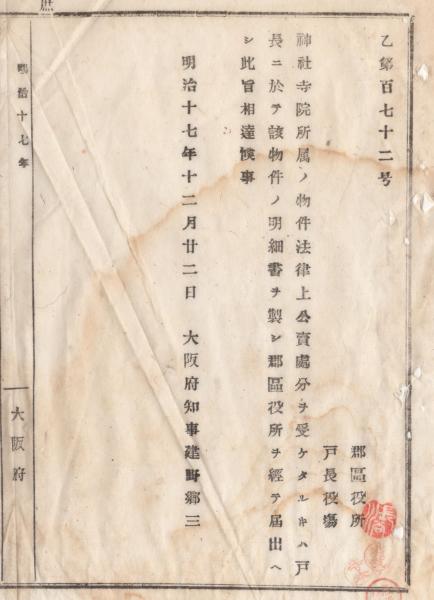 乙第百七十二号
郡區役所
戸長役場
神社寺院所属ノ物件法律上公賣處分ヲ受ケタルキハ戸
長ニ於テ該物件ノ明細書ヲ製シ郡區役所ヲ經テ届出ヘ
シ此旨相達候事
明治十七年十二月廿二日 大阪府知事建野郷三
明治十七年
大阪府